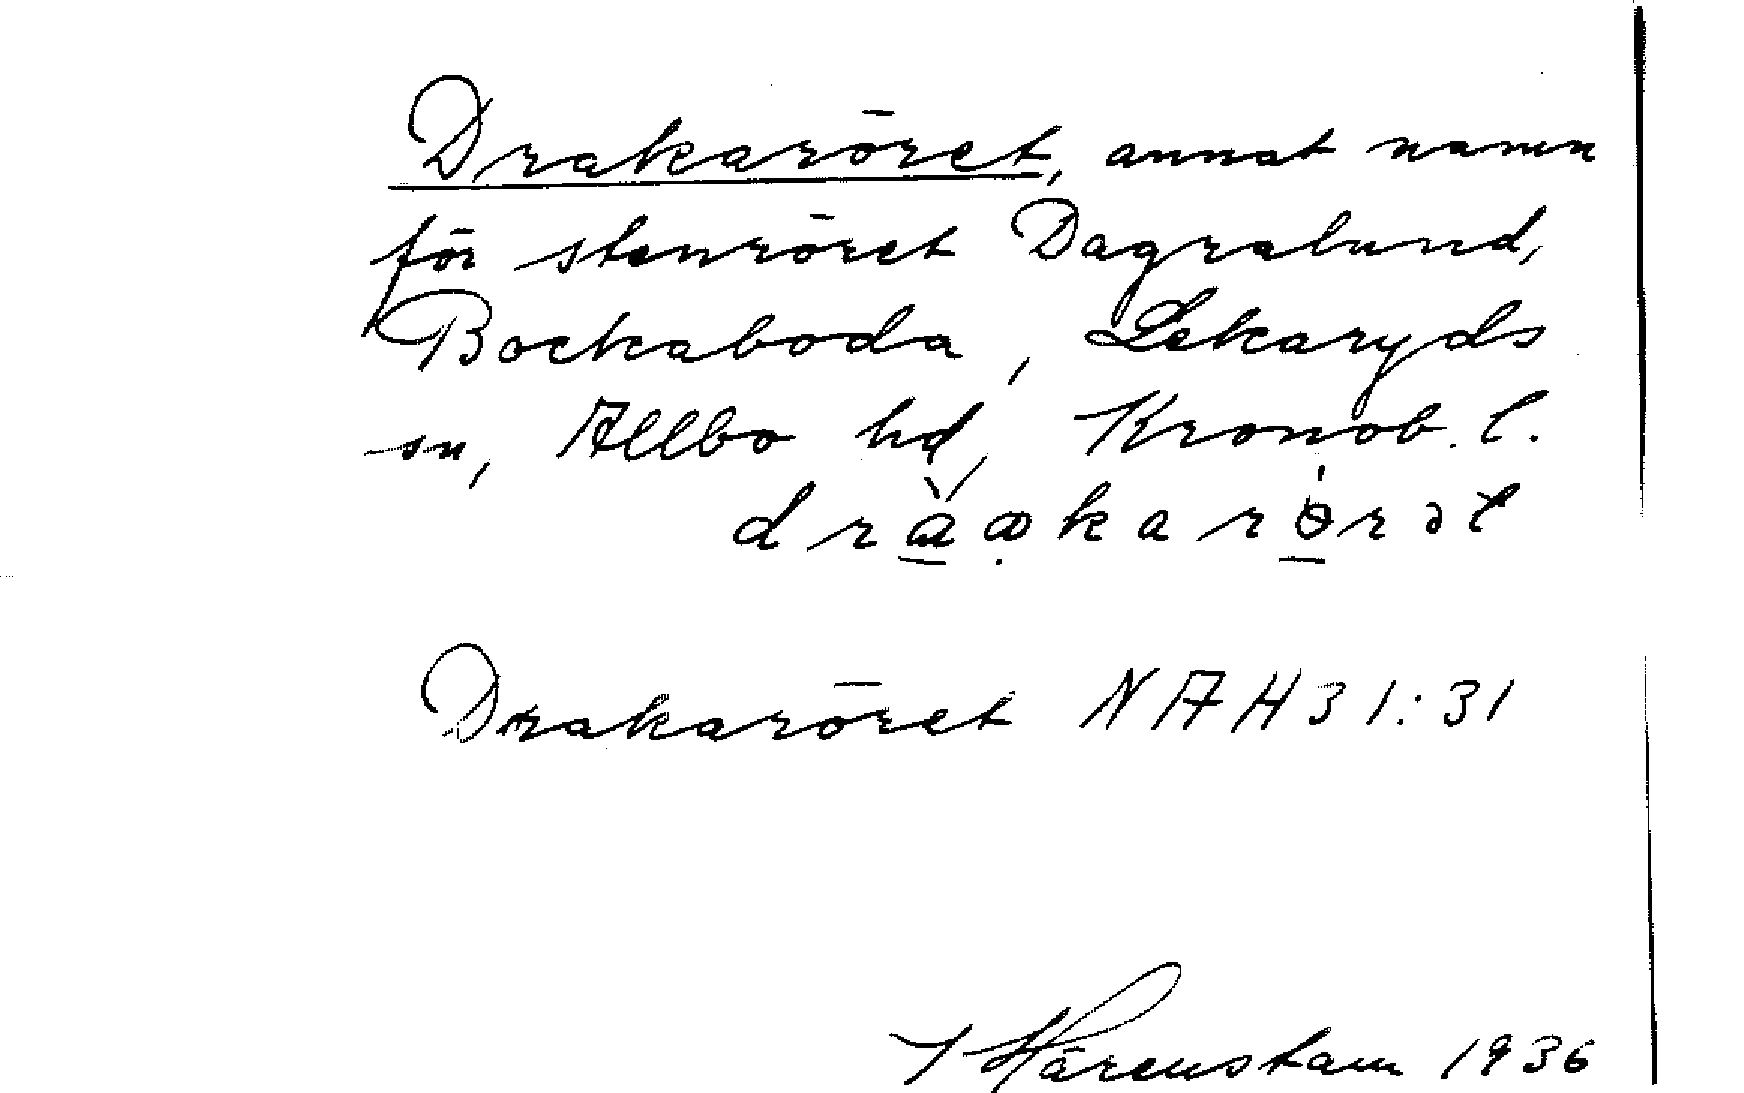 Drakaröret, annat namn
för stenröret Dagralund,
Bockaboda, Lekaryds
sn, Allbo hd, Kronob. l.
Drakaröret NAH 31:31
Härenstam 1936